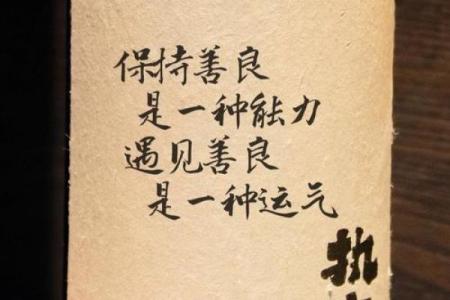 保持善良
是一种能力
遇见善良
是一种运气
执